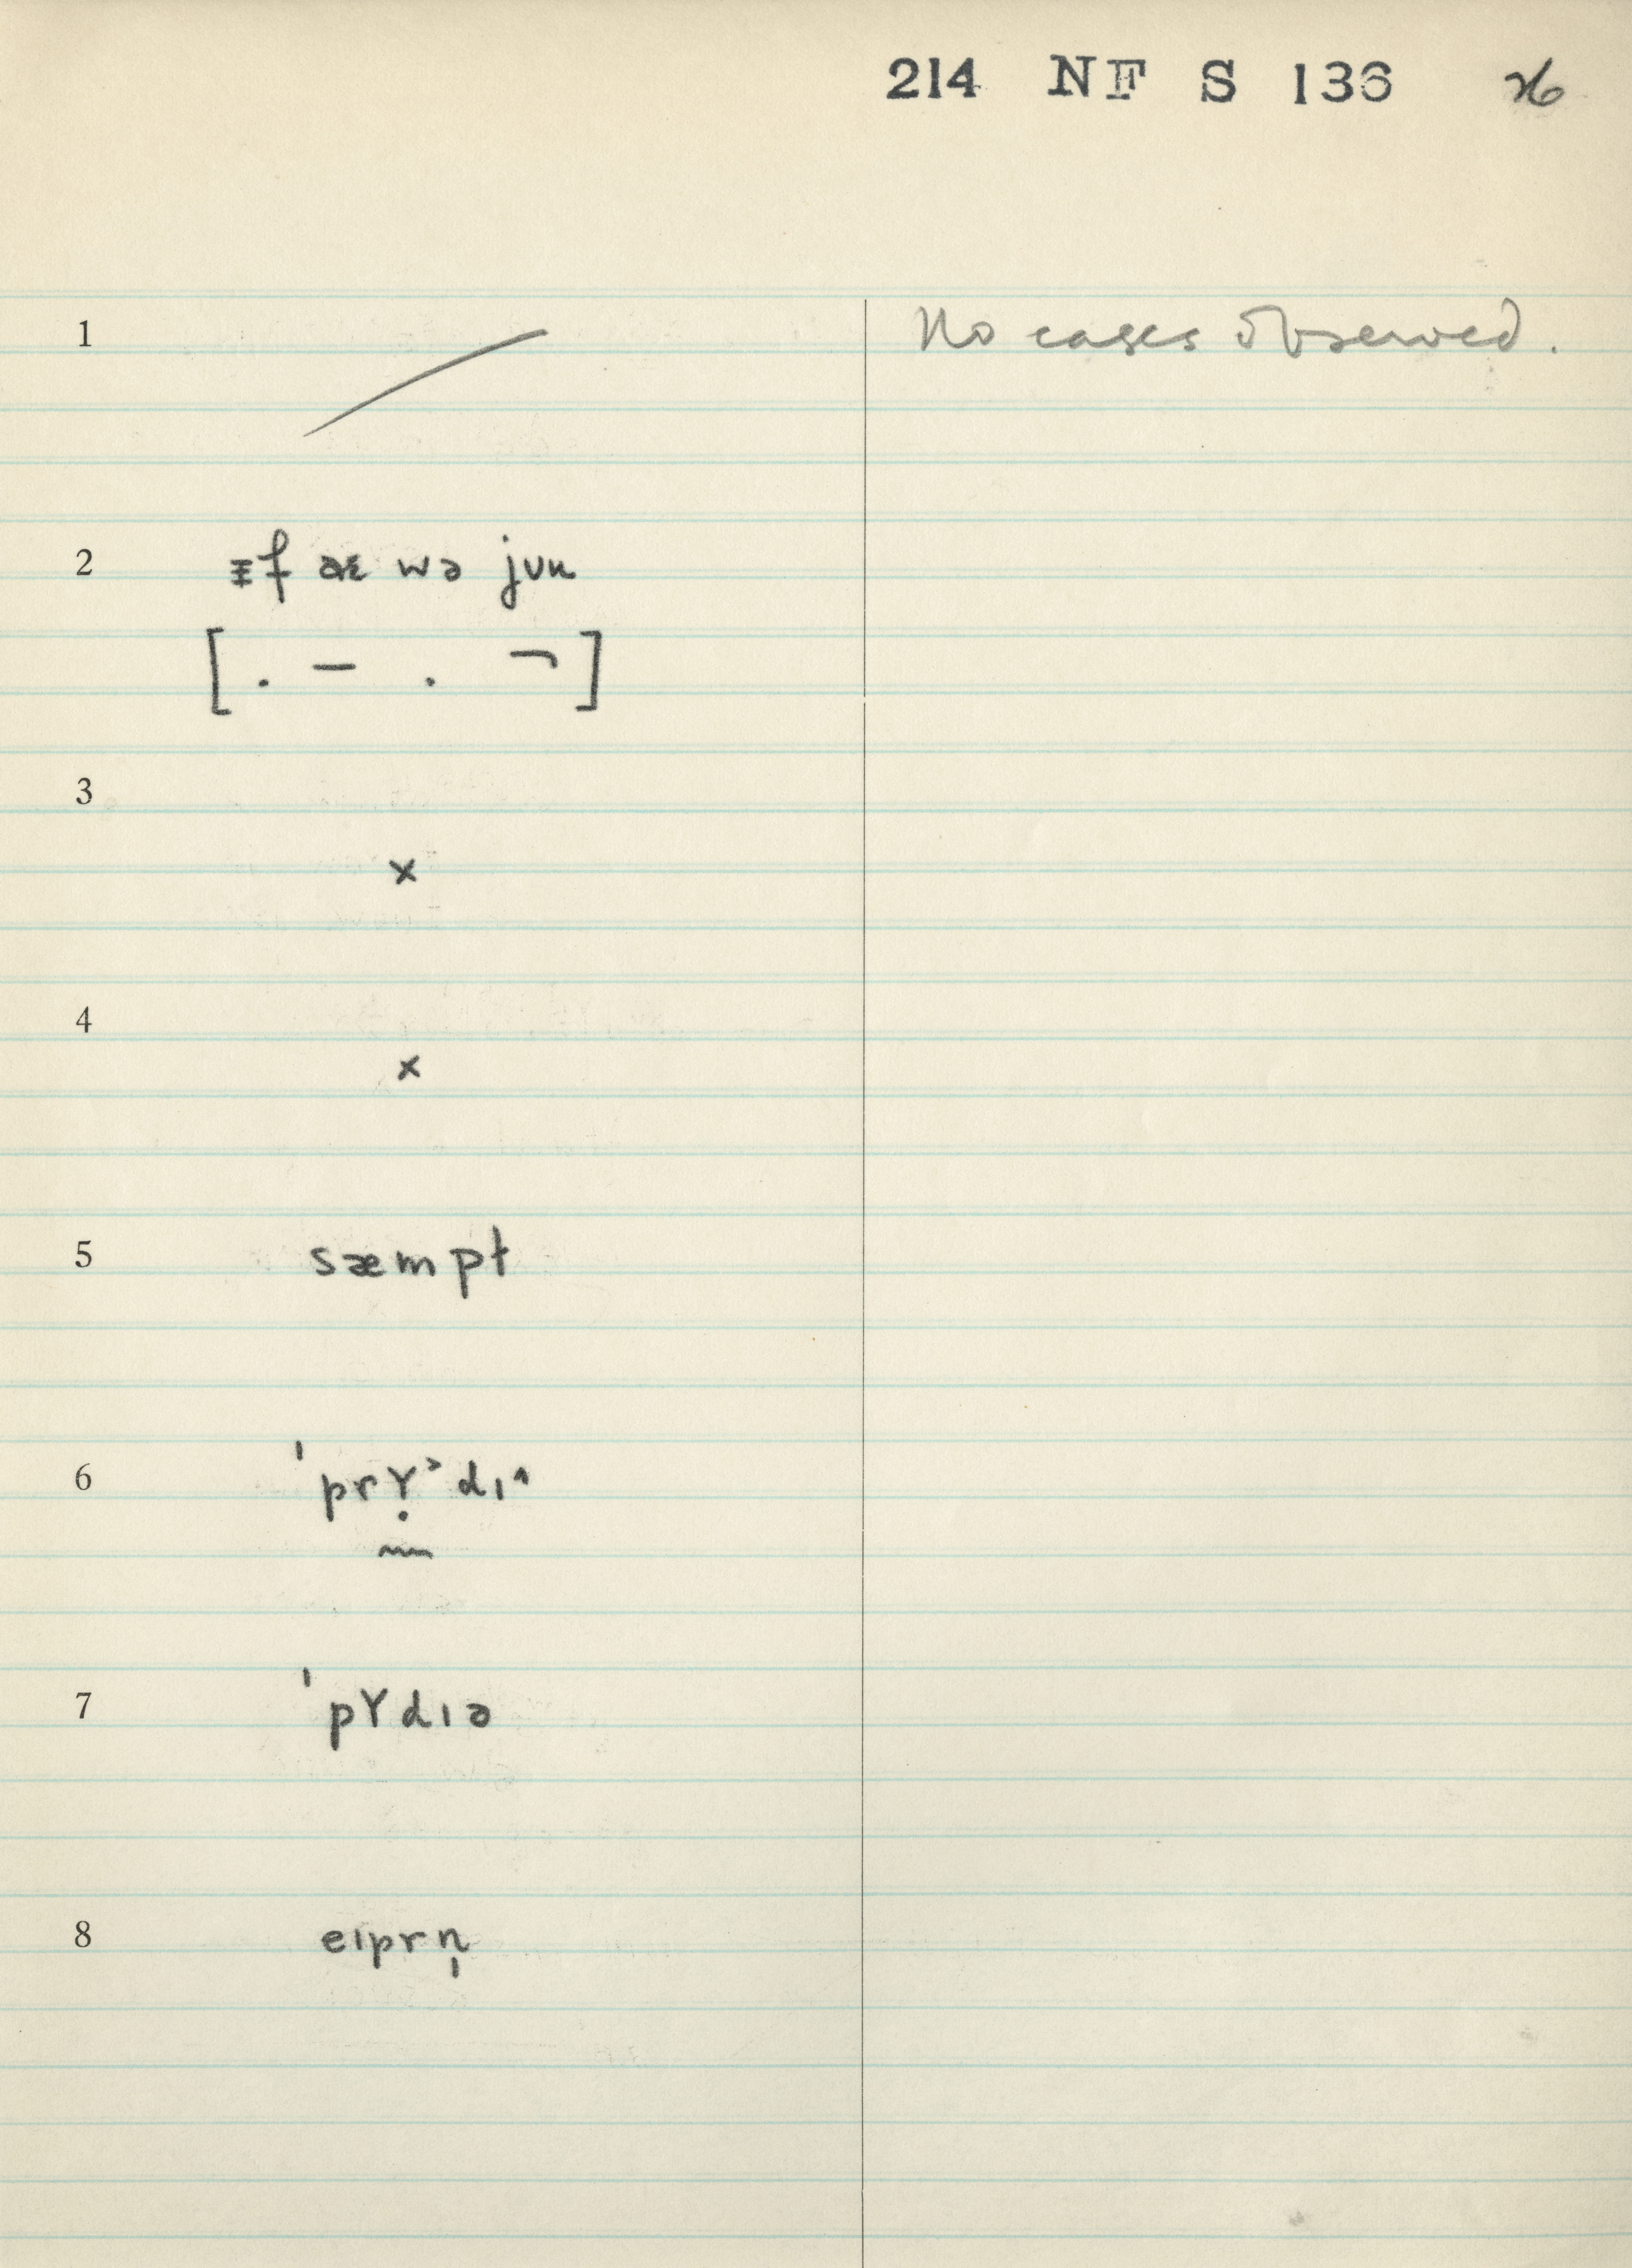 214 NF S 136
1 No cases observed.
2 ᵻf æɛ wə jʊu
[ . – . ¬ ]
3
×
4
×
5 sæmpł
6 ˈprʏ̣˃dɩ˄
7 ˈpʏdɩə
8 eɩprn̩